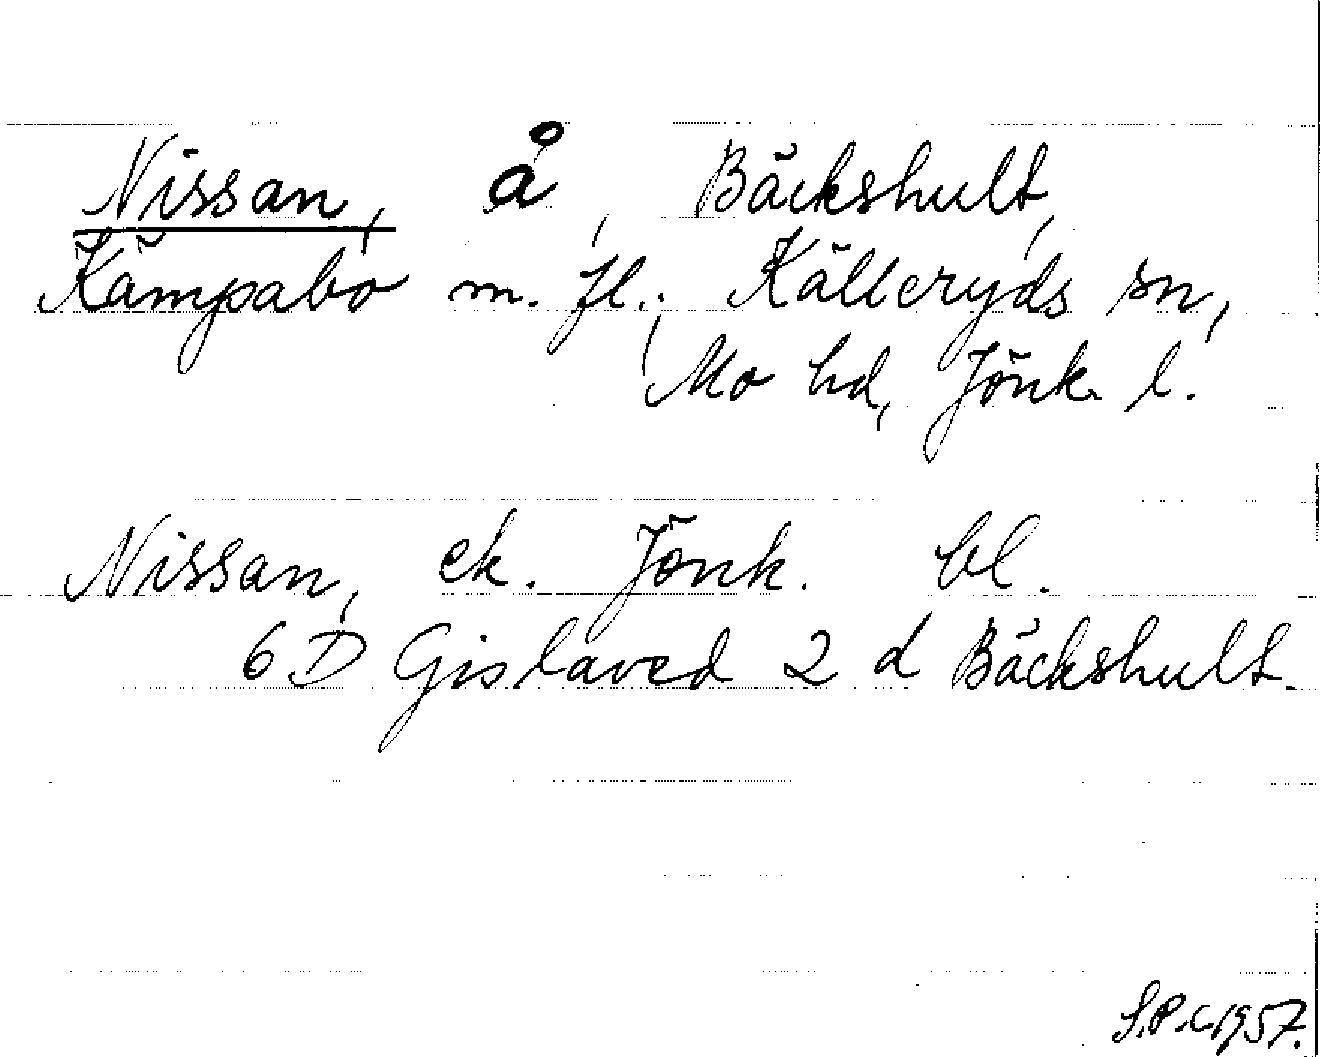 Nissan, å, Bäckshult,
Kämpabo m. fl., Källeryds sn,
Mo hd, Jönk. l.
Nissan, ek. Jönk. bl.
6 D Gislaved 2 d Bäckshult.
S.P.C. 1957.